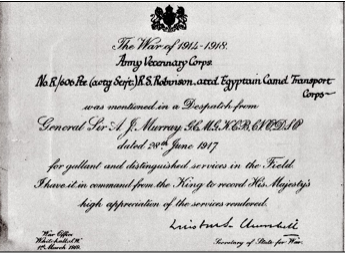 The War of 1914-1918.
Army Veterinary Corps.
No. R/606 Pte. (actg Sejt.) R. S. Robinson. attd. Egyptain Camel Transport
Corps
was mentioned in a Despatch from
General Sir A. J. Murray G.C.M.G. K.C.B. C.V.O. D.S.O.
dated 28th June 1917
for gallant and distinguished services in the Field.
I have it in command from the King to record His Majesty's
high appreciation of the services rendered.
Winston S. Churchill
War Office
Whitehall. S.W.
1st March 1919.
Secretary of State for War.